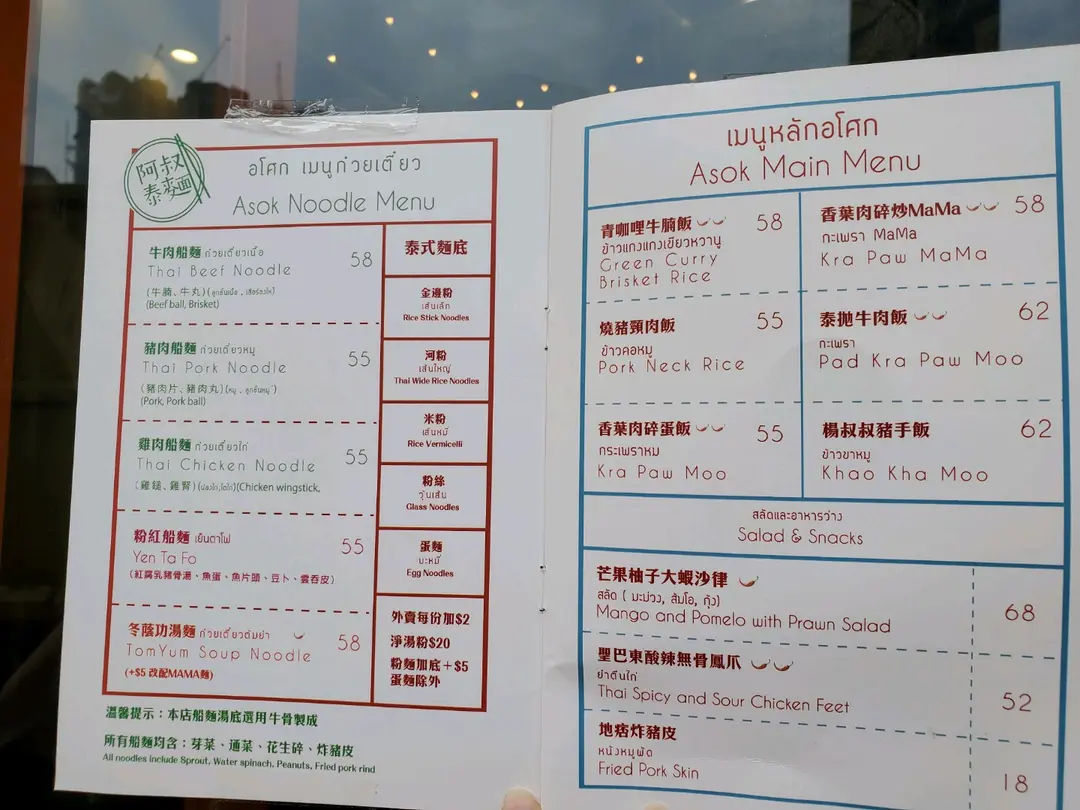 阿叔
泰麵
อโศก เมนูก๋วยเตี๋ยว
Asok Noodle Menu
牛肉船麵 ก๋วยเตี๋ยวเนื้อ 58
Thai Beef Noodle
(牛腩、牛丸)
(Beef ball, Brisket)
豬肉船麵 ก๋วยเตี๋ยวหมู 55
Thai Pork Noodle
(豬肉片、豬肉丸)(หมู , ลูกชิ้นหมู)
(Pork, Pork ball)
雞肉船麵 ก๋วยเตี๋ยวไก่ 55
Thai Chicken Noodle
(雞鎚、雞腎)(Chicken wingstick,
粉紅船麵 เย็นตาโฟ 55
Yen Ta Fo
(紅腐乳豬骨湯、魚蛋、魚片頭、豆卜、雲吞皮)
冬蔭功湯麵 ก๋วยเตี๋ยวต้มยำ 58
TomYum Soup Noodle
(+$5 改配MAMA麵)
泰式麵底
金邊粉
เส้นเล็ก
Rice Stick Noodles
河粉
เส้นใหญ่
Thai Wide Rice Noodles
米粉
เส้นหมี่
Rice Vermicelli
粉絲
วุ้นเส้น
Glass Noodles
蛋麵
บะหมี่
Egg Noodles
外賣每份加$2
淨湯粉$20
粉麵加底+$5
蛋麵除外
溫馨提示：本店船麵湯底選用牛骨製成
所有船麵均含：芽菜、通菜、花生碎、炸豬皮
All noodles include Sprout, Water spinach, Peanuts, Fried pork rind
เมนูหลักอโศก
Asok Main Menu
青咖哩牛腩飯 58
ข้าวแกงแกงเขียวหวานู
Green Curry
Brisket Rice
燒豬頸肉飯 55
ข้าวคอหมู
Pork Neck Rice
香葉肉碎蛋飯 55
กระเพราหม
Kra Paw Moo
香葉肉碎炒MaMa 58
กะเพรา MaMa
Kra Paw MaMa
泰拋牛肉飯 62
กะเพรา
Pad Kra Paw Moo
楊叔叔豬手飯 62
ข้าวขาหมู
Khao Kha Moo
สลัดและอาหารว่าง
Salad & Snacks
芒果柚子大蝦沙律 68
สลัด ( มะม่วง, ส้มโอ, กุ้ง)
Mango and Pomelo with Prawn Salad
聖巴東酸辣無骨鳳爪 52
ยำตีนไก่
Thai Spicy and Sour Chicken Feet
地痞炸豬皮 18
หนังหมูผัด
Fried Pork Skin